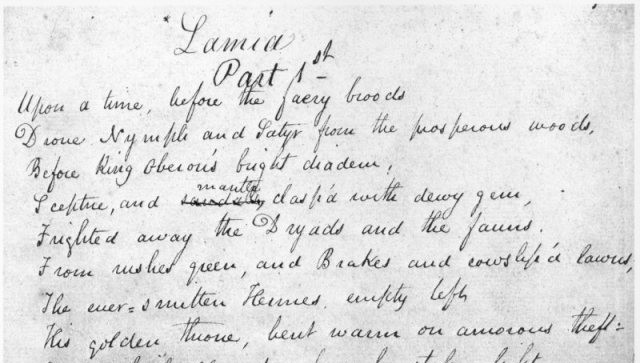 Lamia
Part 1st
Upon a time, before the faery broods
Drove Nymph and Satyr from the prosperous woods,
Before King Oberon's bright diadem,
Sceptre, and mantle clasp'd with dewy gem,
Frighted away the Dryads and the fauns
From rushes green, and Brakes and cowslip'd lawns,
The ever-smitten Hermes empty left
His golden throne, bent warm on amorous theft: